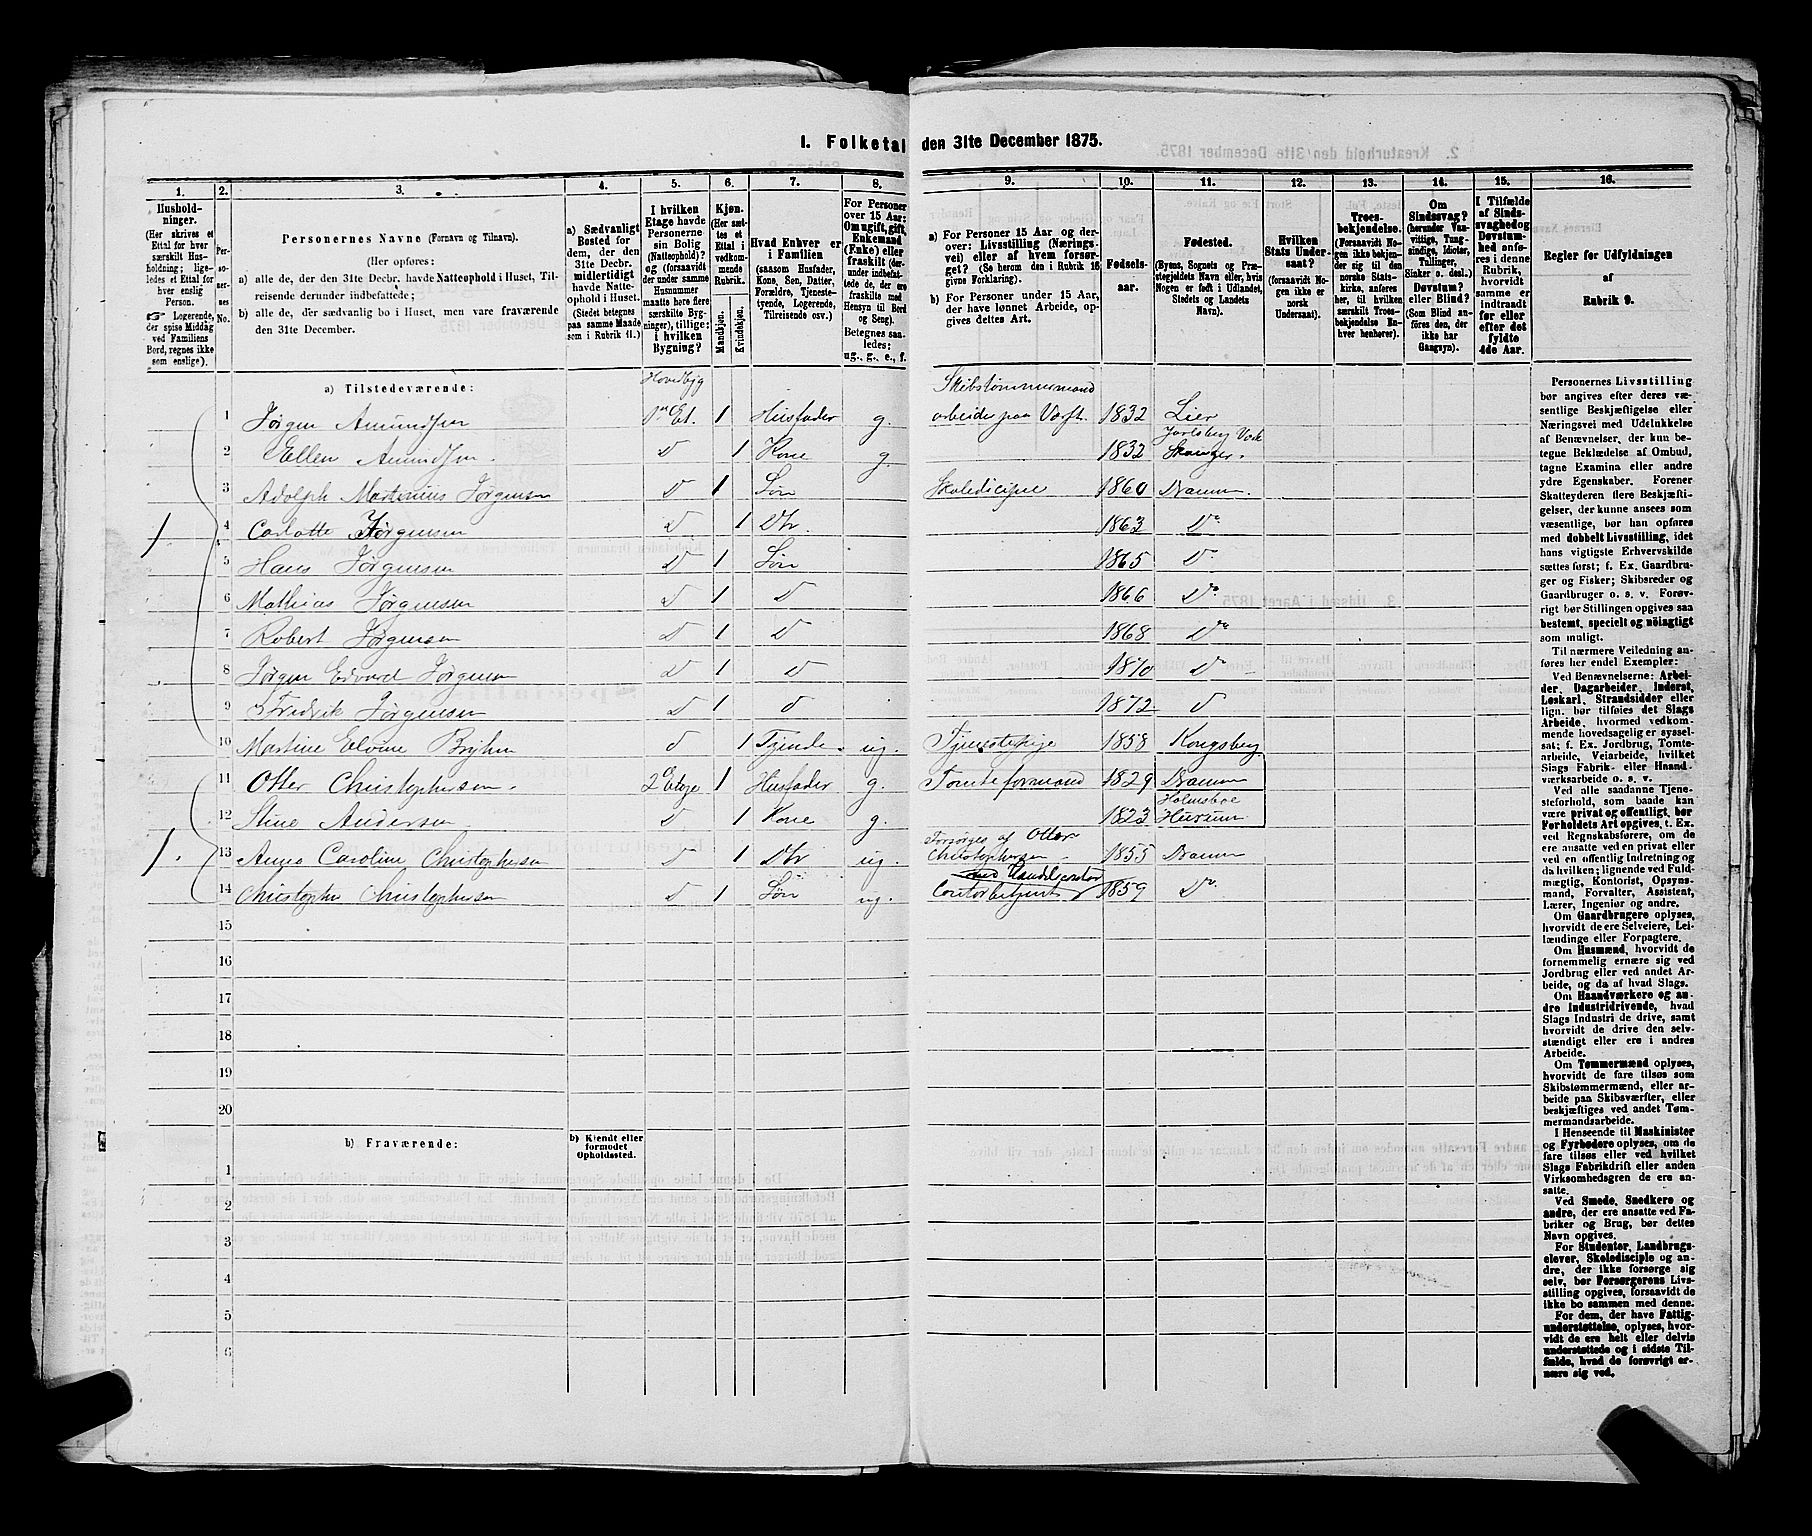 I. Folketal den 31te December 1875.
1. 2. 3. 4. 5. 6. 7. 8. 9. 10. 11. 12. 13. 14. 15. 16.
Husholdninger.
(Her skrives et
Ettal for hver
særskilt Husholdning; ligeledes et Ettal for
hver enslig
Person.
☞ Logerende,
der spise Middag
ved Familiens
Bord, regnes ikke
som enslige).
Personernes No.
Personernes Navne (Fornavn og Tilnavn).
(Her opføres:
a) alle de, der den 31te Decbr. havde Natteophold i Huset, Tilreisende derunder indbefattede;
b) alle de, der sædvanlig bo i Huset, men vare fraværende
den 31te December.
a) Sædvanligt
Bosted for
dem, der den
31te Decbr.
midlertidigt
havde Natteophold i Huset.
(Stedet betegnes
paa samme Maade
som i Rubrik 11.)
I hvilken
Etage havde
Personerne
sin Bolig
(Natteophold)?
og (forsaavidt
der under samme
Husnummer
maatte høre flere
særskilte Bygninger), tillige:
i hvilken
Bygning?
Kjøn.
(Her sættes et
Ettal i
vedkommende
Rubrik.
Mandkjøn.
Kvindekjøn.
Hvad Enhver er
i Familien
(saasom Husfader,
Kone, Søn, Datter,
Forældre, Tjenestetyende, Logerende,
Tilreisende osv.)
For Personer
over 15 Aar:
Om ugift, gift,
Enkemand
(Enke) eller
fraskilt (derunder indbefattede de, der ere
fraskilte med
Hensyn til Bord
og Seng).
Betegnes saaledes:
ug., g., e., f.
a) For Personer 15 Aar og derover: Livsstilling (Næringsvei) eller af hvem forsørget? (Se herom den i Rubrik 16
givne Forklaring).
b) For Personer under 15 Aar,
der have lønnet Arbeide, opgives dettes Art.
Fødselsaar.
Fødested.
(Byens, Sognets og Præstegjeldets Navn eller, hvis
Nogen er født i Udlandet,
Stedets og Landets
Navn).
Hvilken
Stats Undersaat?
(forsaavidt Nogen ikke er
norsk
Undersaat).
Troesbekjendelse.
(Forsaavidt Nogen ikke bekjender sig til den
norske Statskirke, anføres
her, til hvilken
særskilt Troesbekjendelse Enhver henhører).
Om
Sindssvag?
(herunder Vanvittige, Tungsindige, Idioter,
Tullinger,
Sinker o. desl.)
Døvstum?
eller Blind?
(Som Blind anføres den, der
ikke har
Gangsyn).
I Tilfælde
af Sindssvaghed og
Døvstumhed anføres i denne
Rubrik,
hvorvidt
samme er
indtraadt
før eller
efter det
fyldte
4de Aar.
Regler for Udfyldningen
af
Rubrik 9.
a) Tilstedeværende:
Hovedbyg
1 Jørgen Amundsen 1ste Et. 1 Husfader g. Skibstømmermand arbeide paa Værft. 1832 Lier
2 Ellen Amundsen. D 1 Kone g. 1832 Jarlsberg Skouger.
3 Adolph Martinius Jørgensen D 1 Søn Skoledicipel 1860 Dramm.
1 4 Carlotte Jørgensen D 1 Dtr. 1863 Do
5 Hans Jørgensen D 1 Søn 1865 Do
6 Mathias Jørgensen D 1 D 1866 Do
7 Robert Jørgensen D 1 D 1868 Do
8 Jørgen Edvard Jørgensen D 1 D 1870 Do
9 Fredrik Jørgensen D 1 d 1872 D
10 Martine Elvine Bryhn d 1 Tjende. ug. Tjenestepige 1858 Kongsberg
11 Otter Christophersen. 2 Etage 1 Husfader g. Tomteformand 1829 Dramm
12 Stine Andersen D 1 Kone g. 1823 Holmsboe Hurum
1 13 Anne Caroline Christophersen D 1 Dtr ug. Forsørges af Otter Christophersen 1855 Dramm
14 Christopher Christophersen D 1 Søn ug. Contorbetjent 1859 Do
15
16
17
18
19
20
b) Fraværende:
b) Kjendt eller
formodet
Opholdssted.
1
2
3
4
5
6
Personernes Livsstilling
bør angives efter deres væsentlige Beskjæftigelse eller
Næringsvei med Udelukkelse
af Benævnelser, der kun betegne Beklædelse af Ombud,
tagne Examina eller andre
ydre Egenskaber. Forener
Skatteyderen flere Beskjæftigelser, der kunne ansees som
væsentlige, bør han opføres
med dobbelt Livsstilling, idet
hans vigtigste Erhvervskilde
sættes først; f. Ex. Gaardbruger og Fisker; Skibsreder og
Gaardbruger o. s. v. Forøvrigt bør Stillingen opgives saa
bestemt, specielt og nöiagtigt
som muligt.
Til nærmere Veiledning anføres her endel Exempler:
Ved Benævnelserne: Arbeider, Dagarbeider, Inderst,
Løskarl, Strandsidder eller
lign. bør tilføies det Slags
Arbeide, hvormed vedkommende hovedsagelig er sysselsat; f. Ex. Jordbrug, Tomtearbeide, Veiarbeide, hvilket
Slags Fabrik- eller Haandværksarbeide o. s. v.
Ved alle saadanne Tjenesteforhold, som baade kan
være privat og offentligt, bør
Forholdets Art opgives, t. Ex.
ved Regnskabsførere, om de
ere ansatte ved en privat eller
ved en offentlig Indretning og
da hvilken; lignende ved Fuldmægtig, Kontorist, Opsynsmand, Forvalter, Assistent,
Lærer, Ingeniør og andre.
Om Gaardbrugere oplyses,
hvorvidt de ere Selveiere, Leilændinge eller Forpagtere.
Om Husmænd, hvorvidt de
fornemmelig ernære sig ved
Jordbrug eller ved andet Arbeide, og da af hvad Slags.
Om Haandværkere og andre Industridrivende, hvad
Slags Industri de drive, samt
hvorvidt de drive den selvstændigt eller ere i andres
Arbeide.
Om Tømmermænd oplyses,
hvorvidt de fare tilsøs som
Skibstømmermænd, eller arbeide paa Skibsværfter, eller
beskjæftiges ved andet Tømmermandsarbeide.
I Henseende til Maskinister
og Fyrbødere oplyses, om de
fare tilsøs eller ved hvilket
Slags Fabrikdrift eller anden
Virksomhedsgren de ere ansatte.
Ved Smede, Snedkere og
andre, der ere ansatte ved Fabriker og Brug, bør dettes
Navn opgives.
For Studenter, Landbrugselever, Skoledisciple og andre, der ikke forsørge sig
selv, bør Forsørgerens Livsstilling opgives, forsaavidt de
ikke bo sammen med denne.
For dem, der have Fattigunderstøttelse, oplyses, hvorvidt de ere helt eller delvis
understøttede og i sidste Tilfælde, hvad de forøvrigt ernære sig ved.